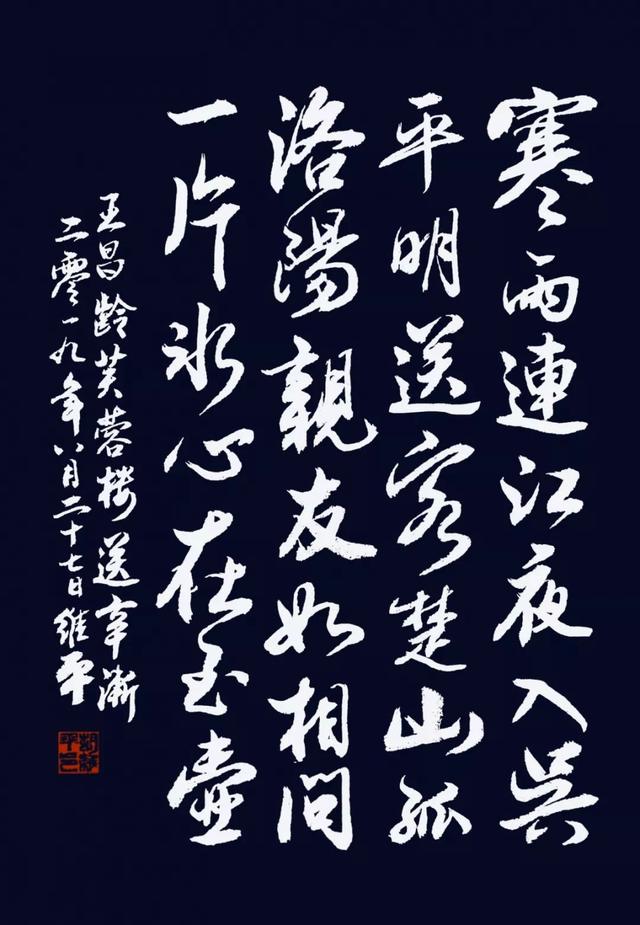 寒雨連江夜入吳
平明送客楚山孤
洛陽親友如相問
一片冰心在玉壺
王昌齡芙蓉樓送辛漸
二零一九年八月二十七日維平